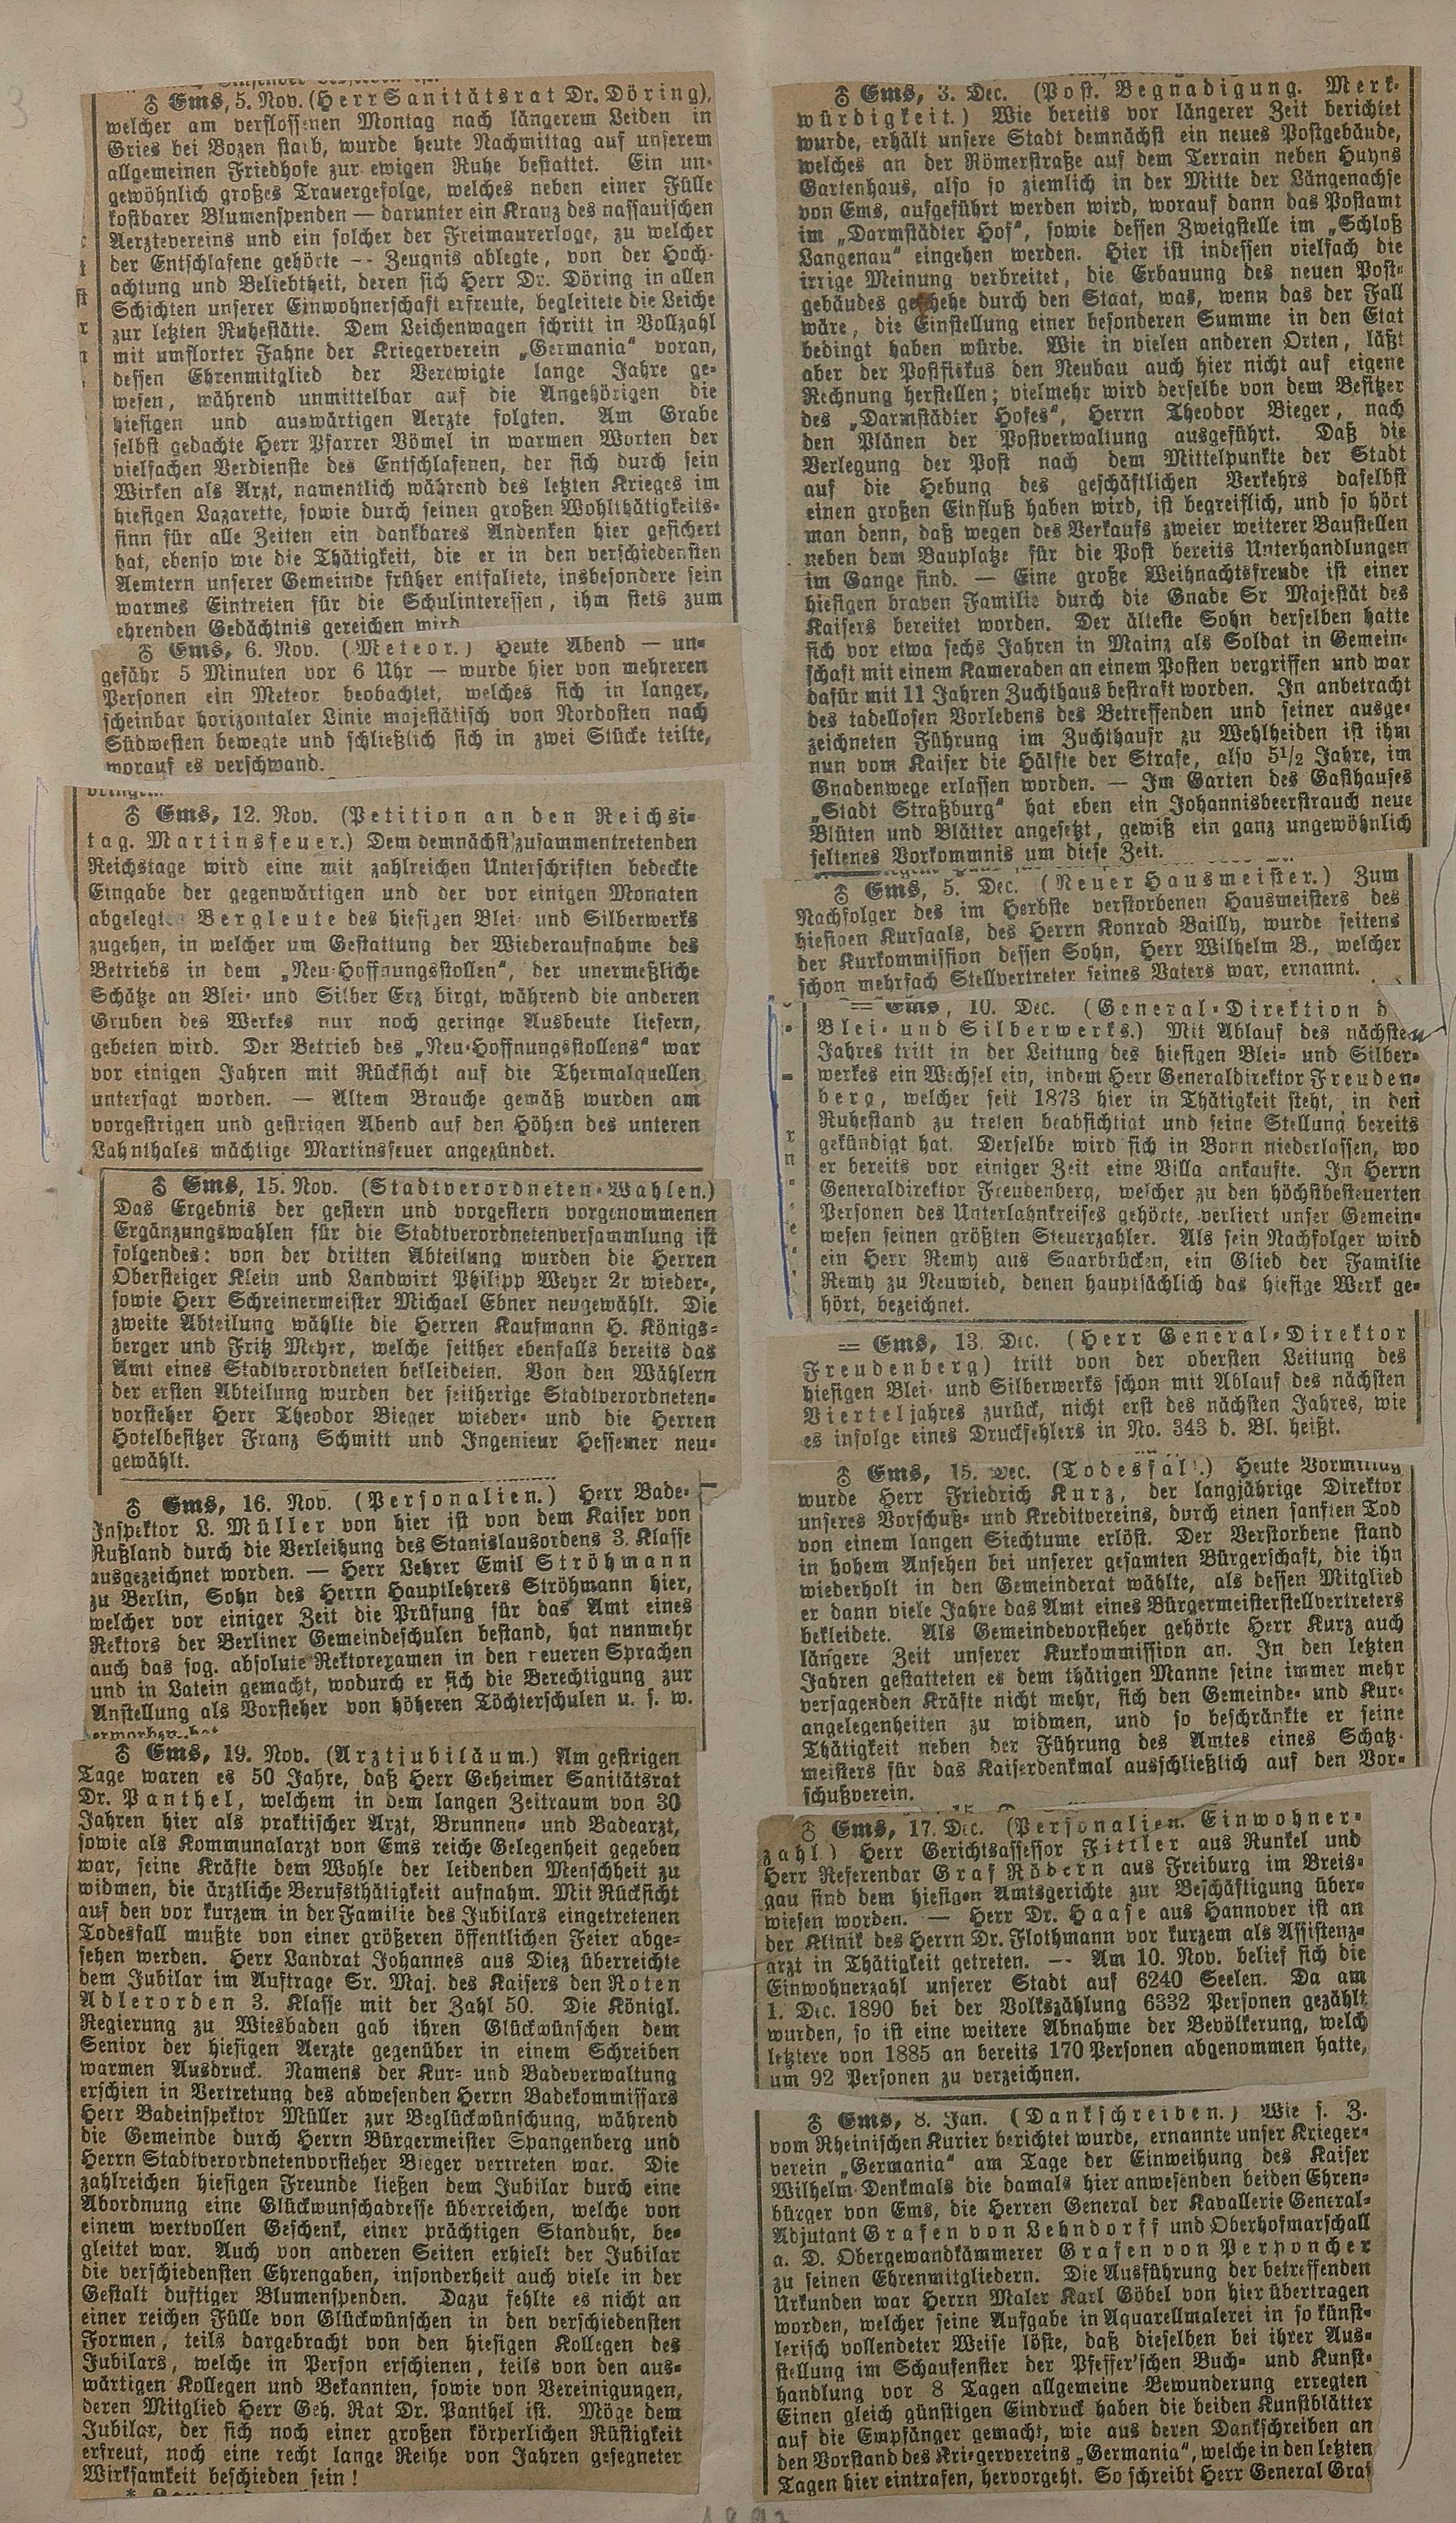 ♁ Ems, 5. Nov. (Herr Sanitätsrat Dr. Döring),
welcher am verflossenen Montag nach längerem Leiden in
Gries bei Bozen starb, wurde heute Nachmittag auf unserem
allgemeinen Friedhofe zur ewigen Ruhe bestattet. Ein un-
gewöhnlich großes Trauergefolge, welches neben einer Fülle
kostbarer Blumenspenden — darunter ein Kranz des nassauischen
Aerztevereins und ein solcher der Freimaurerloge, zu welcher
der Entschlafene gehörte -- Zeugnis ablegte, von der Hoch-
achtung und Beliebtheit, deren sich Herr Dr. Döring in allen
Schichten unserer Einwohnerschaft erfreute, begleitete die Leiche
zur letzten Ruhestätte. Dem Leichenwagen schritt in Vollzahl
mit umflorter Fahne der Kriegerverein „Germania“ voran,
dessen Ehrenmitglied der Verewigte lange Jahre ge-
wesen, während unmittelbar auf die Angehörigen die
hiesigen und auswärtigen Aerzte folgten. Am Grabe
selbst gedachte Herr Pfarrer Vömel in warmen Worten der
vielfachen Verdienste des Entschlafenen, der sich durch sein
Wirken als Arzt, namentlich während des letzten Krieges im
hiesigen Lazarette, sowie durch seinen großen Wohlthätigkeits-
sinn für alle Zeiten ein dankbares Andenken hier gesichert
hat, ebenso wie die Thätigkeit, die er in den verschiedensten
Aemtern unserer Gemeinde früher entfaltete, insbesondere sein
warmes Eintreten für die Schulinteressen, ihm stets zum
ehrenden Gedächtnis gereichen wird
♁ Ems, 6. Nov. (Meteor.) Heute Abend — un-
gefähr 5 Minuten vor 6 Uhr — wurde hier von mehreren
Personen ein Meteor beobachtet, welches sich in langer,
scheinbar horizontaler Linie majestätisch von Nordosten nach
Südwesten bewegte und schließlich sich in zwei Stücke teilte,
worauf es verschwand.
♁ Ems, 12. Nov. (Petition an den Reichs-
tag. Martinsfeuer.) Dem demnächst zusammentretenden
Reichstage wird eine mit zahlreichen Unterschriften bedeckte
Eingabe der gegenwärtigen und der vor einigen Monaten
abgelegte Bergleute des hiesigen Blei- und Silberwerks
zugehen, in welcher um Gestattung der Wiederaufnahme des
Betriebs in dem „Neu-Hoffnungsstollen“, der unermeßliche
Schätze an Blei- und Silber Erz birgt, während die anderen
Gruben des Werkes nur noch geringe Ausbeute liefern,
gebeten wird. Der Betrieb des „Neu-Hoffnungsstollens“ war
vor einigen Jahren mit Rücksicht auf die Thermalquellen
untersagt worden. — Altem Brauche gemäß wurden am
vorgestrigen und gestrigen Abend auf den Höhen des unteren
Lahnthales mächtige Martinsfeuer angezündet.
♁ Ems, 15. Nov. (Stadtverordneten-Wahlen.)
Das Ergebnis der gestern und vorgestern vorgenommenen
Ergänzungswahlen für die Stadtverordnetenversammlung ist
folgendes: von der dritten Abteilung wurden die Herren
Obersteiger Klein und Landwirt Philipp Weyer 2r wieder-,
sowie Herr Schreinermeister Michael Ebner neugewählt. Die
zweite Abteilung wählte die Herren Kaufmann H. Königs-
berger und Fritz Meyer, welche seither ebenfalls bereits das
Amt eines Stadtverordneten bekleideten. Von den Wählern
der ersten Abteilung wurden der seitherige Stadtverordneten-
vorsteher Herr Theodor Bieger wieder- und die Herren
Hotelbesitzer Franz Schmitt und Ingenieur Hessemer neu-
gewählt.
♁ Ems, 16. Nov. (Personalien.) Herr Bade-
Inspektor L. Müller von hier ist von dem Kaiser von
Rußland durch die Verleihung des Stanislausordens 3. Klasse
ausgezeichnet worden. — Herr Lehrer Emil Ströhmann
zu Berlin, Sohn des Herrn Hauptlehrers Ströhmann hier,
welcher vor einiger Zeit die Prüfung für das Amt eines
Rektors der Berliner Gemeindeschulen bestand, hat nunmehr
auch das sog. absolute Rektorexamen in den neueren Sprachen
und in Latein gemacht, wodurch er sich die Berechtigung zur
Anstellung als Vorsteher von höheren Töchterschulen u. s. w.
erworben hat
♁ Ems, 19. Nov. (Arztjubiläum.) Am gestrigen
Tage waren es 50 Jahre, daß Herr Geheimer Sanitätsrat
Dr. Panthel, welchem in dem langen Zeitraum von 30
Jahren hier als praktischer Arzt, Brunnen- und Badearzt,
sowie als Kommunalarzt von Ems reiche Gelegenheit gegeben
war, seine Kräfte dem Wohle der leidenden Menschheit zu
widmen, die ärztliche Berufsthätigkeit aufnahm. Mit Rücksicht
auf den vor kurzem in der Familie des Jubilars eingetretenen
Todesfall mußte von einer größeren öffentlichen Feier abge-
sehen werden. Herr Landrat Johannes aus Diez überreichte
dem Jubilar im Auftrage Sr. Maj. des Kaisers den Roten
Adlerorden 3. Klasse mit der Zahl 50. Die Königl.
Regierung zu Wiesbaden gab ihren Glückwünschen dem
Senior der hiesigen Aerzte gegenüber in einem Schreiben
warmen Ausdruck. Namens der Kur- und Badeverwaltung
erschien in Vertretung des abwesenden Herrn Badekommissars
Herr Badeinspektor Müller zur Beglückwünschung, während
die Gemeinde durch Herrn Bürgermeister Spangenberg und
Herrn Stadtverordnetenvorsteher Bieger vertreten war. Die
zahlreichen hiesigen Freunde ließen dem Jubilar durch eine
Abordnung eine Glückwunschadresse überreichen, welche von
einem wertvollen Geschenk, einer prächtigen Standuhr, be-
gleitet war. Auch von anderen Seiten erhielt der Jubilar
die verschiedensten Ehrengaben, insonderheit auch viele in der
Gestalt duftiger Blumenspenden. Dazu fehlte es nicht an
einer reichen Fülle von Glückwünschen in den verschiedensten
Formen, teils dargebracht von den hiesigen Kollegen des
Jubilars, welche in Person erschienen, teils von den aus-
wärtigen Kollegen und Bekannten, sowie von Vereinigungen,
deren Mitglied Herr Geh. Rat Dr. Panthel ist. Möge dem
Jubilar, der sich noch einer großen körperlichen Rüstigkeit
erfreut, noch eine recht lange Reihe von Jahren gesegneter
Wirksamkeit beschieden sein!
♁ Ems, 3. Dec. (Post. Begnadigung. Merk-
würdigkeit.) Wie bereits vor längerer Zeit berichtet
wurde, erhält unsere Stadt demnächst ein neues Postgebäude,
welches an der Römerstraße auf dem Terrain neben Huyns
Gartenhaus, also so ziemlich in der Mitte der Längenachse
von Ems, aufgeführt werden wird, worauf dann das Postamt
im „Darmstädter Hof“, sowie dessen Zweigstelle im „Schloß
Langenau“ eingehen werden. Hier ist indessen vielfach die
irrige Meinung verbreitet, die Erbauung des neuen Post-
gebäudes geschehe durch den Staat, was, wenn das der Fall
wäre, die Einstellung einer besonderen Summe in den Etat
bedingt haben würde. Wie in vielen anderen Orten, läßt
aber der Postfiskus den Neubau auch hier nicht auf eigene
Rechnung herstellen; vielmehr wird derselbe von dem Besitzer
des „Darmstädter Hofes“, Herrn Theodor Bieger, nach
den Plänen der Postverwaltung ausgeführt. Daß die
Verlegung der Post nach dem Mittelpunkte der Stadt
auf die Hebung des geschäftlichen Verkehrs daselbst
einen großen Einfluß haben wird, ist begreiflich, und so hört
man denn, daß wegen des Verkaufs zweier weiterer Baustellen
neben dem Bauplatze für die Post bereits Unterhandlungen
im Gange sind. — Eine große Weihnachtsfreude ist einer
hiesigen braven Familie durch die Gnade Sr Majestät des
Kaisers bereitet worden. Der älteste Sohn derselben hatte
sich vor etwa sechs Jahren in Mainz als Soldat in Gemein-
schaft mit einem Kameraden an einem Posten vergriffen und war
dafür mit 11 Jahren Zuchthaus bestraft worden. In anbetracht
des tadellosen Vorlebens des Betreffenden und seiner ausge-
zeichneten Führung im Zuchthause zu Wehlheiden ist ihm
nun vom Kaiser die Hälfte der Strafe, also 5½ Jahre, im
Gnadenwege erlassen worden. — Im Garten des Gasthauses
„Stadt Straßburg“ hat eben ein Johannisbeerstrauch neue
Blüten und Blätter angesetzt, gewiß ein ganz ungewöhnlich
seltenes Vorkommnis um diese Zeit.
♁ Ems, 5. Dec. (Neuer Hausmeister.) Zum
Nachfolger des im Herbste verstorbenen Hausmeisters des
hiesigen Kursaals, des Herrn Konrad Bailly, wurde seitens
der Kurkommission dessen Sohn, Herr Wilhelm B., welcher
schon mehrfach Stellvertreter seines Vaters war, ernannt.
= Ems, 10. Dec. (General-Direktion d
Blei- und Silberwerks.) Mit Ablauf des nächsten
Jahres tritt in der Leitung des hiesigen Blei- und Silber-
werkes ein Wechsel ein, indem Herr Generaldirektor Freuden-
berg, welcher seit 1873 hier in Thätigkeit steht, in den
Ruhestand zu treten beabsichtigt und seine Stellung bereits
gekündigt hat. Derselbe wird sich in Bonn niederlassen, wo
er bereits vor einiger Zeit eine Villa ankaufte. In Herrn
Generaldirektor Freudenberg, welcher zu den höchstbesteuerten
Personen des Unterlahnkreises gehörte, verliert unser Gemein-
wesen seinen größten Steuerzahler. Als sein Nachfolger wird
ein Herr Remy aus Saarbrücken, ein Glied der Familie
Remy zu Neuwied, denen hauptsächlich das hiesige Werk ge-
hört, bezeichnet.
= Ems, 13. Dec. (Herr General-Direktor
Freudenberg) tritt von der obersten Leitung des
hiesigen Blei- und Silberwerks schon mit Ablauf des nächsten
Vierteljahres zurück, nicht erst des nächsten Jahres, wie
es infolge eines Druckfehlers in No. 343 d. Bl. heißt.
♁ Ems, 15. Dec. (Todesfall.) Heute Vormittag
wurde Herr Friedrich Kurz, der langjährige Direktor
unseres Vorschuß- und Kreditvereins, durch einen sanften Tod
von einem langen Siechtume erlöst. Der Verstorbene stand
in hohem Ansehen bei unserer gesamten Bürgerschaft, die ihn
wiederholt in den Gemeinderat wählte, als dessen Mitglied
er dann viele Jahre das Amt eines Bürgermeisterstellvertreters
bekleidete. Als Gemeindevorsteher gehörte Herr Kurz auch
längere Zeit unserer Kurkommission an. In den letzten
Jahren gestatteten es dem thätigen Manne seine immer mehr
versagenden Kräfte nicht mehr, sich den Gemeinde- und Kur-
angelegenheiten zu widmen, und so beschränkte er seine
Thätigkeit neben der Führung des Amtes eines Schatz-
meisters für das Kaiserdenkmal ausschließlich auf den Vor-
schußverein.
♁ Ems, 17. Dec. (Personalien. Einwohner-
zahl) Herr Gerichtsassessor Fittler aus Runkel und
Herr Referendar Graf Rödern aus Freiburg im Breis-
gau sind dem hiesigen Amtsgerichte zur Beschäftigung über-
wiesen worden. — Herr Dr. Haase aus Hannover ist an
der Klinik des Herrn Dr. Flothmann vor kurzem als Assistenz-
arzt in Thätigkeit getreten. -- Am 10. Nov. belief sich die
Einwohnerzahl unserer Stadt auf 6240 Seelen. Da am
1. Dec. 1890 bei der Volkszählung 6332 Personen gezählt
wurden, so ist eine weitere Abnahme der Bevölkerung, welch
letztere von 1885 an bereits 170 Personen abgenommen hatte,
um 92 Personen zu verzeichnen.
♁ Ems, 8. Jan. (Dankschreiben.) Wie s. Z.
vom Rheinischen Kurier berichtet wurde, ernannte unser Krieger-
verein „Germania“ am Tage der Einweihung des Kaiser
Wilhelm-Denkmals die damals hier anwesenden beiden Ehren-
bürger von Ems, die Herren General der Kavallerie General-
Adjutant Grafen von Lehndorff und Oberhofmarschall
a. D. Obergewandkämmerer Grafen von Perponcher
zu seinen Ehrenmitgliedern. Die Ausführung der betreffenden
Urkunden war Herrn Maler Karl Göbel von hier übertragen
worden, welcher seine Aufgabe in Aquarellmalerei in so künst-
lerisch vollendeter Weise löste, daß dieselben bei ihrer Aus-
stellung im Schaufenster der Pfeffer'schen Buch- und Kunst-
handlung vor 8 Tagen allgemeine Bewunderung erregten
Einen gleich günstigen Eindruck haben die beiden Kunstblätter
auf die Empfänger gemacht, wie aus deren Dankschreiben an
den Vorstand des Kriegervereins „Germania“, welche in den letzten
Tagen hier eintrafen, hervorgeht. So schreibt Herr General Graf